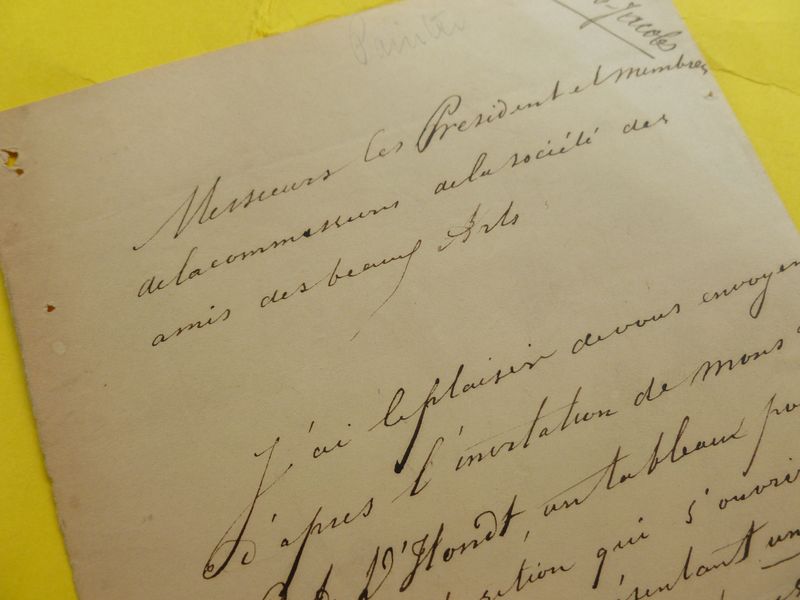 Painter
Jacobs
Messieurs les President et membres
de la commissions de la société des
amis des beaux Arts
J'ai le plaisir de vous envoyer
d'après l'invitation de mons
D'Hondt, un tableaux
qui s'ouvri
un